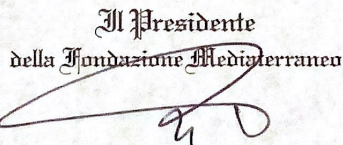 Il Presidente
della Fondazione Mediaterraneo